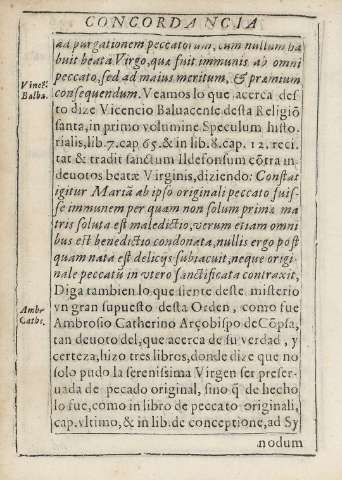 CONCORDANCIA
ad purgationem peccatorum, cum nullum ha
buit beata Virgo, quæ fuit immunis ab omni
peccato, sed ad maius meritum, & præmium
Vincẽ.
Balba.
consequendum. Veamos lo que acerca des-
to dize Vicencio Baluacense desta Religiõ
santa, in primo volumine Speculum histo
rialis, lib. 7. cap. 65. & in lib. 8. cap. 12. reci.
tat & tradit sanctum Ildefonsum cõtra in-
deuotos beatæ Virginis, diziendo: Constat
igitur Mariã ab ipso originali peccato fuis-
se immunem per quam non solum primæ ma
tris soluta est maledictio, verum etiam omni
bus est benedictio condonata, nullis ergo post
quam nata est delicijs subiacuit, neque origi-
nale peccatũ in vtero sanctificata contraxit,
Diga tambien lo que siente deste misterio
Ambr
Cathe.
vn gran supuesto desta Orden, como fue
Ambrosio Catherino Arçobispo de Cõpsa,
tan deuoto del, que acerca de su verdad, y
certeza, hizo tres libros, donde dize que no
solo pudo la serenissima Virgen ser preser-
uada de pecado original, sino q̃ de hecho
lo fue, como in libro de peccato originali,
cap. vltimo, & in lib. de conceptione, ad Sy
nodum